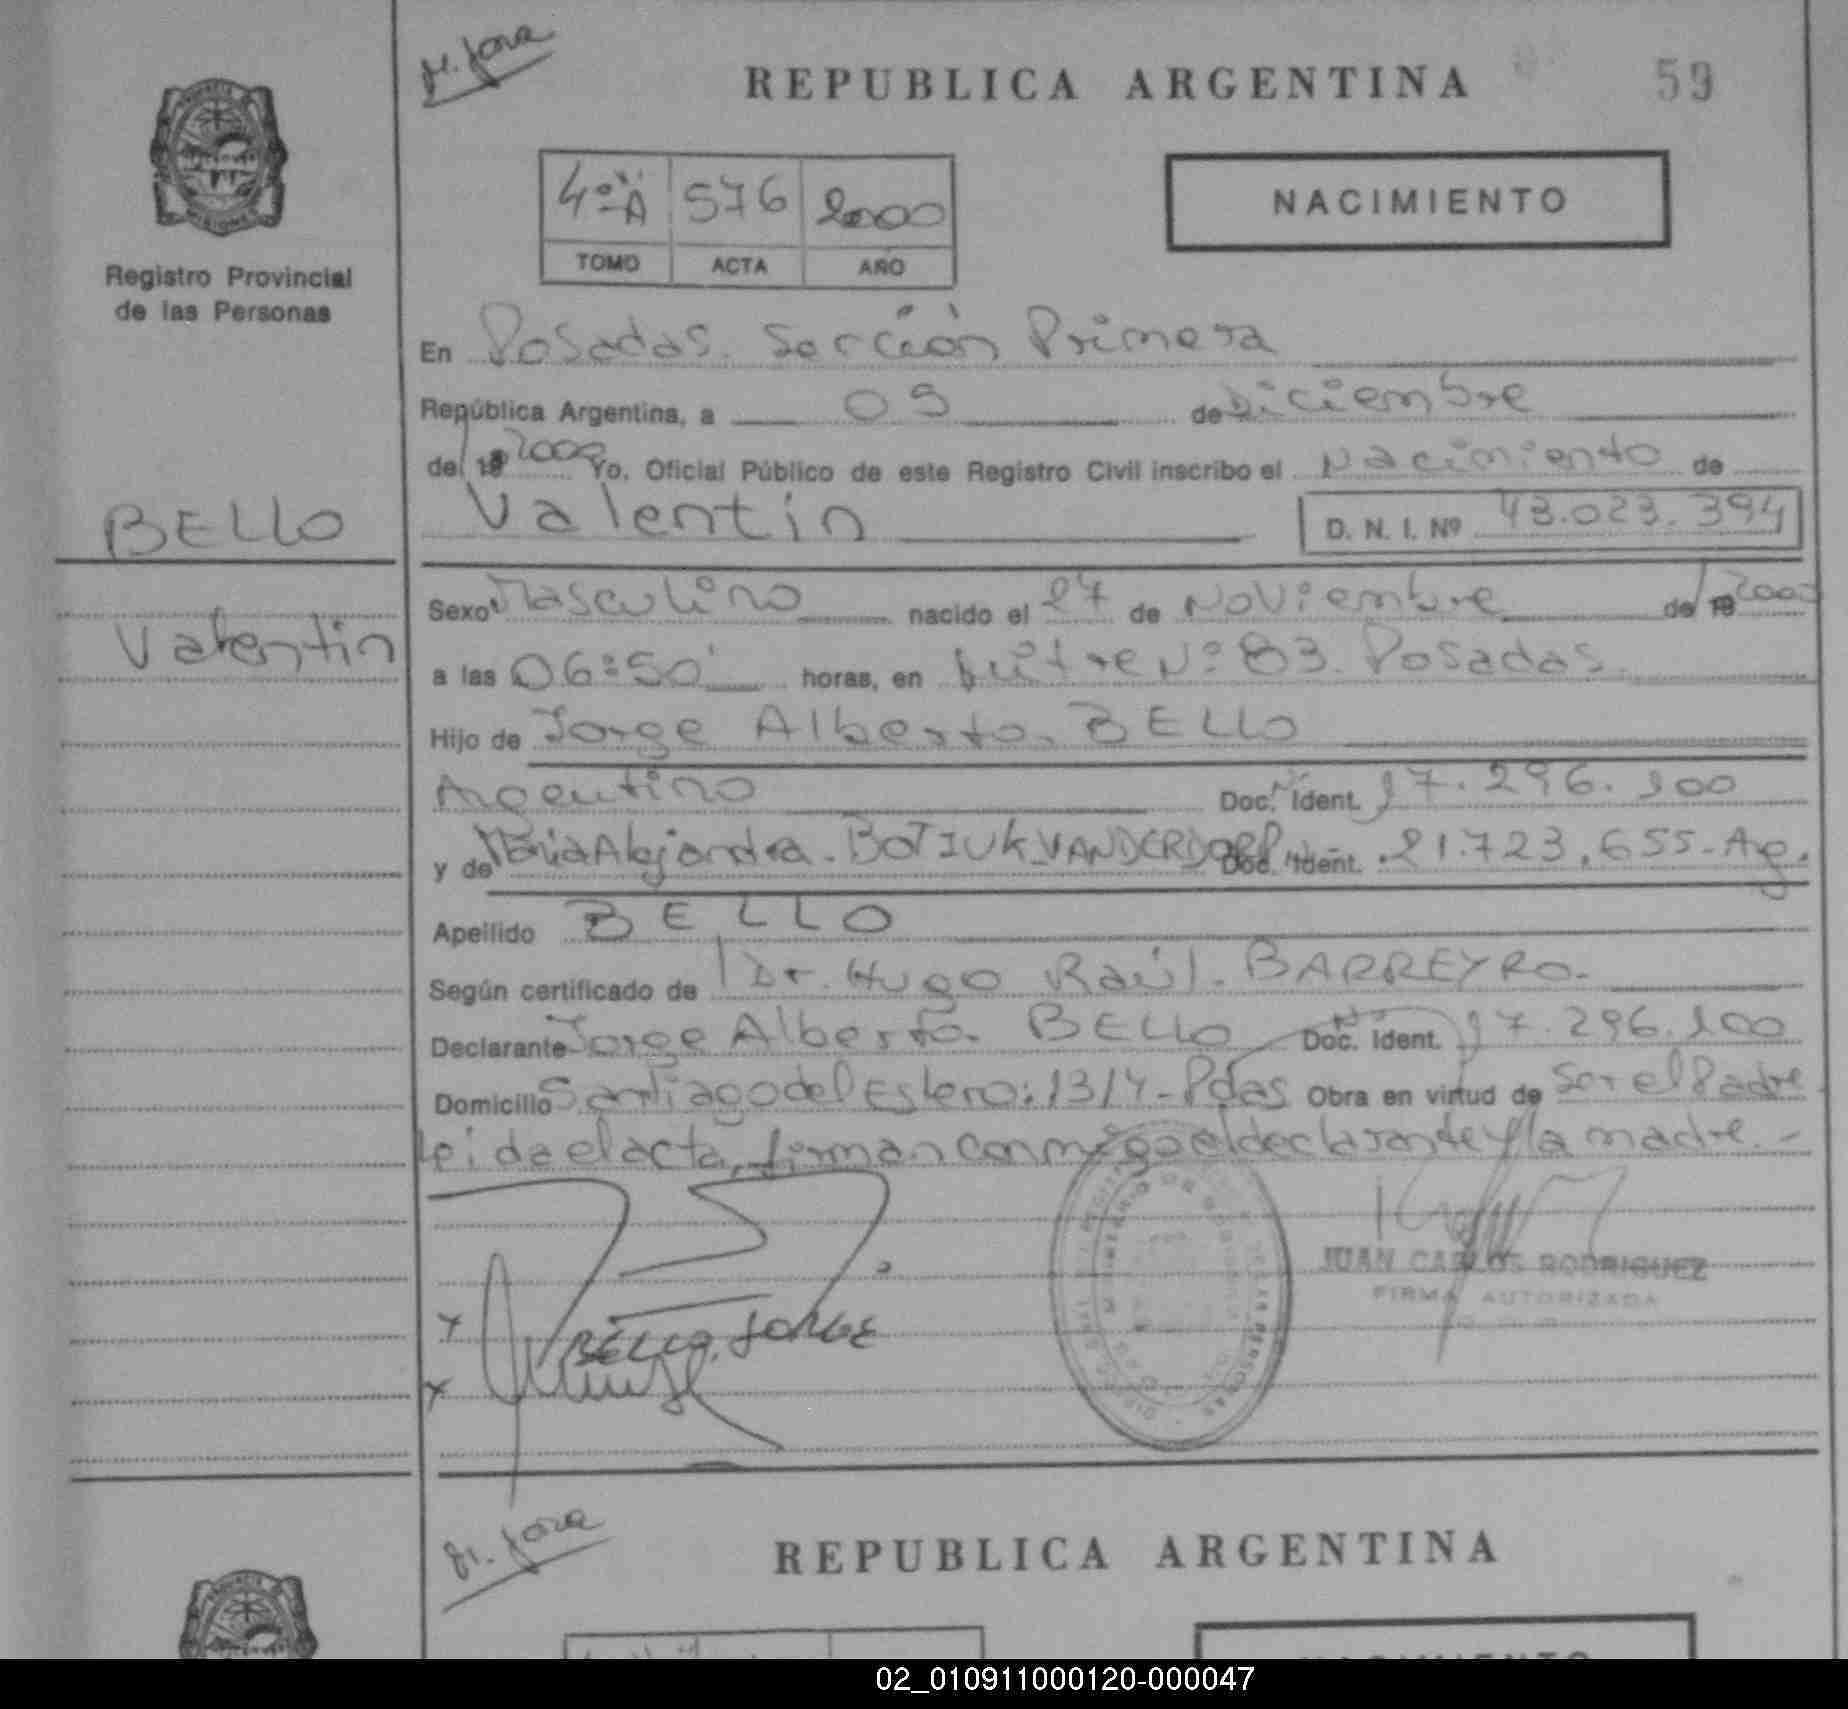 REPUBLICA ARGENTINA
59
4º A 576 2000
TOMO ACTA AÑO
NACIMIENTO
Registro Provincial
de las Personas
En Posadas. Sección Primera
República Argentina, a 05 de Diciembre
del 19 2000 Yo, Oficial Público de este Registro Civil inscribo el Nacimiento de
BELLO
Valentín
D. N. I. Nº 43.023.394
Valentin
Sexo Masculino nacido el 27 de Noviembre de 19 2000
a las 06:50 horas, en Mitre Nº 83. Posadas.
Hijo de Jorge Alberto. BELLO
Argentino Doc. Ident. 17.296.100
y de María Alejandra. BOTIUK VANDERDORP Doc. Ident. 21.723.655-Ag.
Apellido BELLO
Según certificado de Dr. Hugo Raúl. BARREYRO.
Declarante Jorge Alberto. BELLO Doc. Ident. 17.296.100
Domicilio Santiago del Estero: 1314-Pdas Obra en virtud de Ser el Padre
Leida el acta, firman conmigo el declarante y la madre.-
BELLO, JORGE
JUAN CARLOS RODRIGUEZ
FIRMA AUTORIZADA
REPUBLICA ARGENTINA
NACIMIENTO
02_010911000120-000047